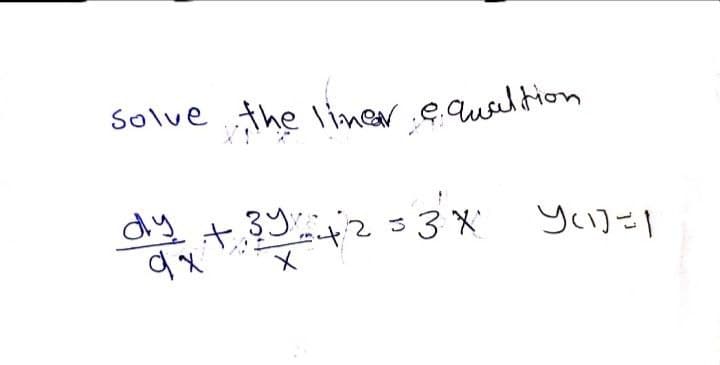 solve the liner equaltion
dy/dx + 3y/x + 2 = 3x y(1)=1